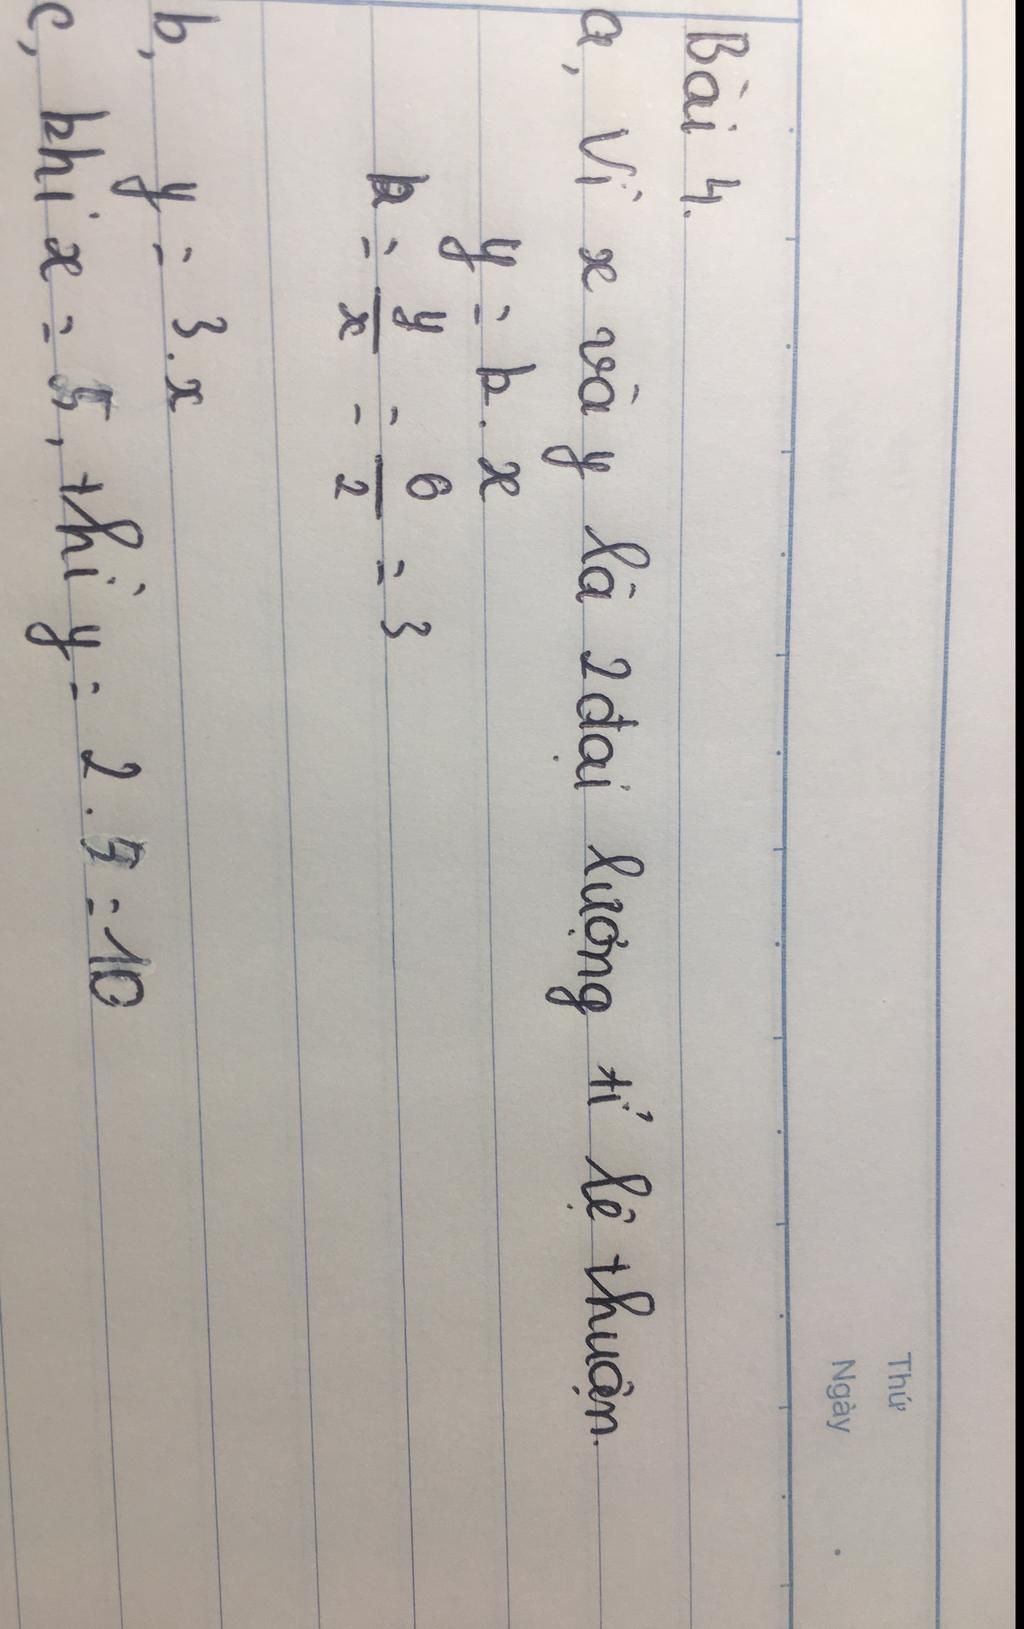 Thứ
Ngày
Bài 4.
a, Vì x và y là 2 đại lượng tỉ lệ thuận.
y = k . x
k = y/x = 6/2 = 3
b, y = 3 . x
c, khi x = 5, thì y = 2 . 5 = 10